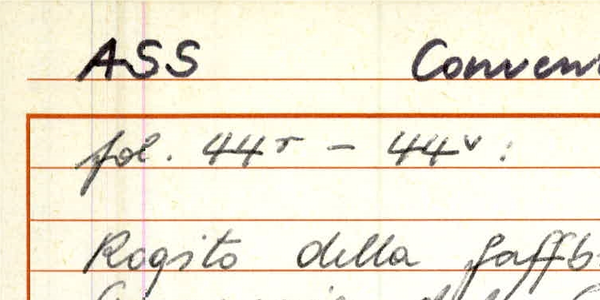 ASS Conven
fol. 44r - 44v:
Rogito della